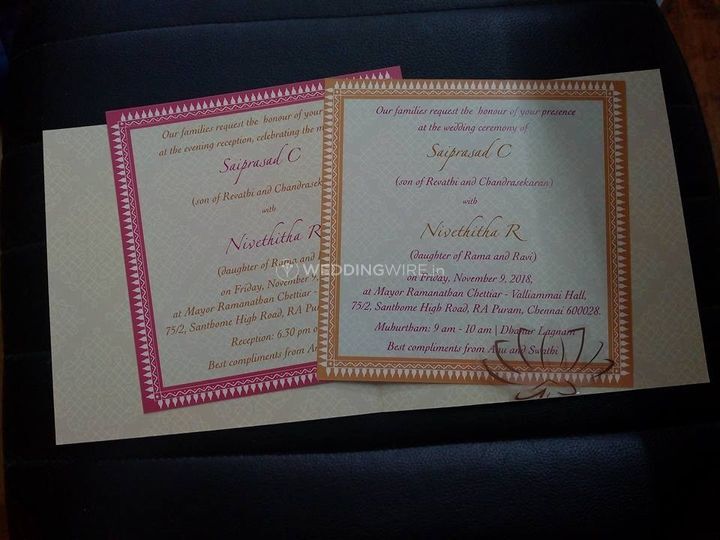 Our families request the honour of your
at the evening reception, celebrating the
Saiprasad C
(son of Revathi and Chandrasek
with
Nivethitha R
(daughter of Rama and
on Friday, November
at Mayor Ramanathan Chettiar -
75/2, Santhome High Road, RA
Reception: 6.30 pm
Best compliments from
Our families request the honour of your presence
at the wedding ceremony of
Saiprasad C
(son of Revathi and Chandrasekaran)
with
Nivethitha R
(daughter of Rama and Ravi)
on Friday, November 9, 2018.
at Mayor Ramanathan Chettiar - Valliammai Hall,
75/2, Santhome High Road, RA Puram, Chennai 600028.
Muhurtham: 9 am - 10 am | Dhanur Lagnam
Best compliments from Anu and Swathi
WEDDINGWIRE.in